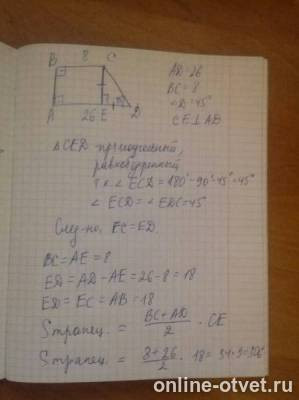 B 8 C
A 26 E D
AD = 26
BC = 8
∠D = 45°
CE ⊥ AD
△CED прямоугольный,
равнобедренный
т.к ∠ECD = 180°-90°-45°=45°
∠ECD = ∠EDC=45°
След-но, EC=ED.
BC = AE = 8
ED = AD - AE = 26-8 = 18
ED = EC = AB = 18
Sтрапец. = BC+AD / 2 · CE
Sтрапец. = 8+26 / 2 · 18 = 34·9=306
online-otvet.ru